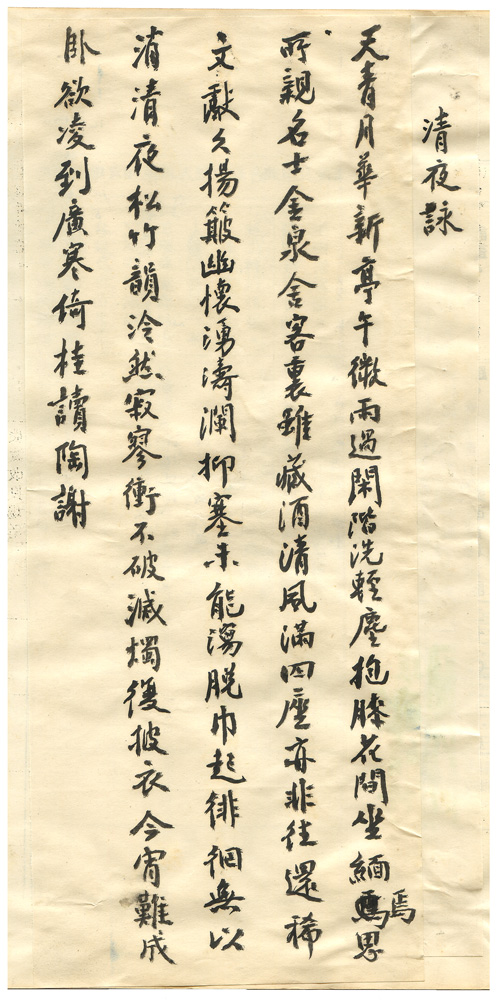 清夜詠
天青月華新亭午微雨過閑階洗輕塵抱膝花間坐緬焉思
焉
所親名士金泉舍客裏雖藏酒清風滿四座亦非往還稀
文獻久揚簸幽懷湧濤瀾抑塞未能瀉脱巾起徘徊無以
消清夜松竹韻泠然寂寥衝不破滅燭復披衣今宵難成
臥欲凌到廣寒倚桂讀陶謝